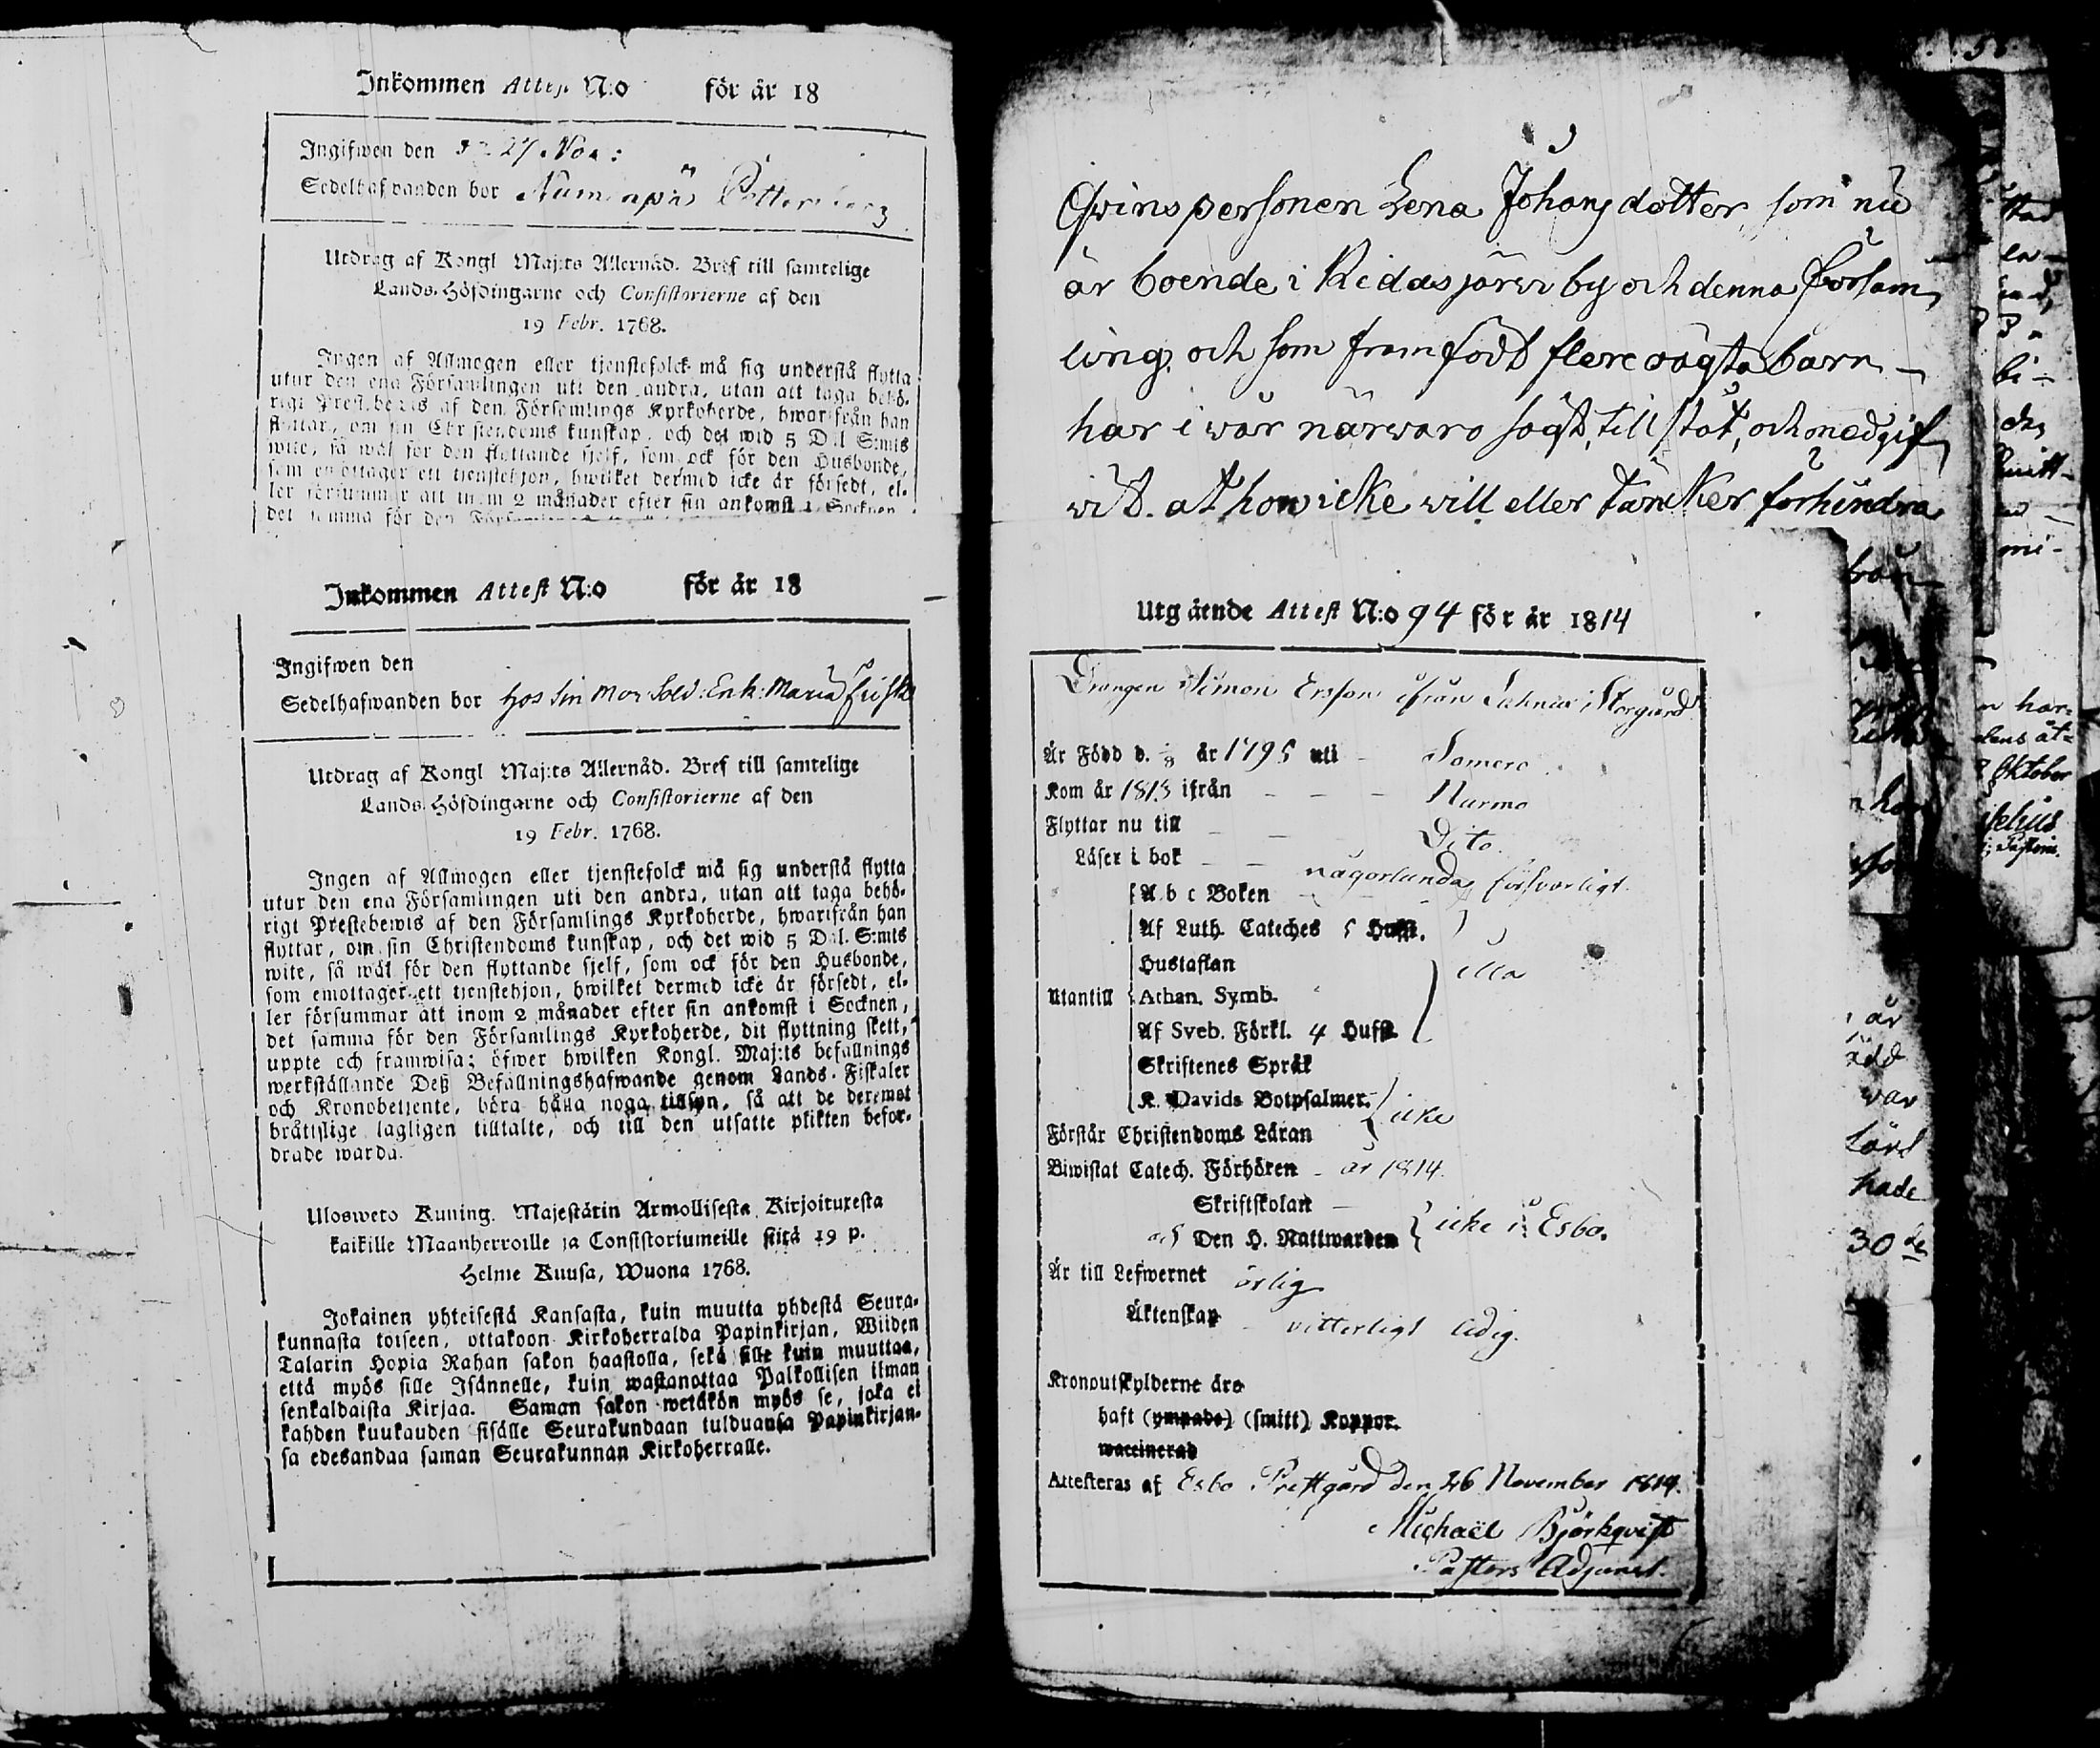 Inkommen Attest N:o för år 18
Ingifwen den 27 Nov:
Sedelhafwanden bor
Utdrag af Kongl Maj:ts Allernåd. Bref till samtelige
Lands-Höfdingarne och Consistorierne af den
19 Febr. 1768.
Ingen af Allmogen eller tjenstefolck må sig understå flytta
utur den ena Församlingen uti den andra, utan att taga behö-
rigt Prestebewis af den Församlings Kyrkoherde, hwarifrån han
flyttar, om sin Christendoms kunskap, och det wid 5 Dal S:mts
wite, så wäl för den flyttande sjelf, som ock för den Husbonde,
som emottager ett tjenstehjon, hwilket dermed icke är försedt, el-
ler försummar att inom 2 månader efter sin ankomst i Socknen,
det samma för den
Inkommen Attest N:o för år 18
Ingifwen den
Sedelhafwanden bor hos sin mor Sold: Enk: Maria Frisk
Utdrag af Kongl Maj:ts Allernåd. Bref till samtelige
Lands-Höfdingarne och Consistorierne af den
19 Febr. 1768.
Ingen af Allmogen eller tjenstefolck må sig understå flytta
utur den ena Församlingen uti den andra, utan att taga behö-
rigt Prestebewis af den Församlings Kyrkoherde, hwarifrån han
flyttar, om sin Christendoms kunskap, och det wid 5 Dal. S:mts
wite, så wäl för den flyttande sjelf, som ock för den Husbonde,
som emottager ett tjenstehjon, hwilket dermed icke är försedt, el-
ler försummar att inom 2 månader efter sin ankomst i Socknen,
det samma för den Församlings Kyrkoherde, dit flyttning skett,
uppte och framwisa; öfwer hwilken Kongl. Maj:ts befallnings
werkställande Deß Befallningshafwande genom Lands-Fiskaler
och Kronobetjente, böra hålla noga tillsyn, så att de deremot
bråttslige lagligen tilltalte, och till den utsatte plikten befor-
drade warda.
Uloswero Kuning. Majestätin Armollisesta Kirjoituxesta
kaikille Maanherroille ja Consistoriumeille siitä 19 p.
Helme Kuusa, Wuona 1768.
Jokainen yhteisestä Kansasta, kuin muutta yhdestä Seura-
kunnasta toiseen, ottakoon Kirkoherralda Papinkirjan, Wiiden
Talarin Hopia Rahan sakon haastolla, sekä sille kuin muuttaa,
että myös sille Isännelle, kuin wastanottaa Palkollisen ilman
senkaldaista Kirjaa. Saman sakon wetäkön myös se, joka ei
kahden kuukauden sisälle Seurakundaan tulduansa Papinkirjan-
sa edesandaa saman Seurakunnan Kirkoherralle.
Qwinspersonen Lena Johansdotter, som nu
är boende i Kidasjärwi by och denna församm
ling, och som framfödt flere oägta barn
har i wår närwaro sagt, tillstöt, och medgif
wit. at hon icke will eller täncker förhindra
Utgående Attest N:o 94 för år 1814
Drängen Simon Ersson ifrån Storgård
Är Född d. år 1795 uti Somero
Kom år 1813 ifrån Nurmo
Flyttar nu till Dito.
Läser i bok någorlunda försvarligt.
Utantill
A b c Boken
Af Luth. Cateches 5 Hufst.
Hustaflan illa
Athan. Symb.
Af Sveb. Förkl. 4 Hufst
Skriftenes Språk
K. Davids Botpsalmer. icke
Förstår Christendoms Läran
Biwistat Catech. Förhören år 1814.
Skriftskolan
och Den H. Nattwarden icke i Esbo.
Är till Lefwernet ärlig
Äktenskap vitterligt ledig.
Kronoutskylderne äro
haft (ympade) (smitt) Koppor.
waccinerad
Attesteras af Esbo Prestgård den 26 November 1814.
Michaël Björkqvist
Pastors Adjunct.
30 de
Oktober